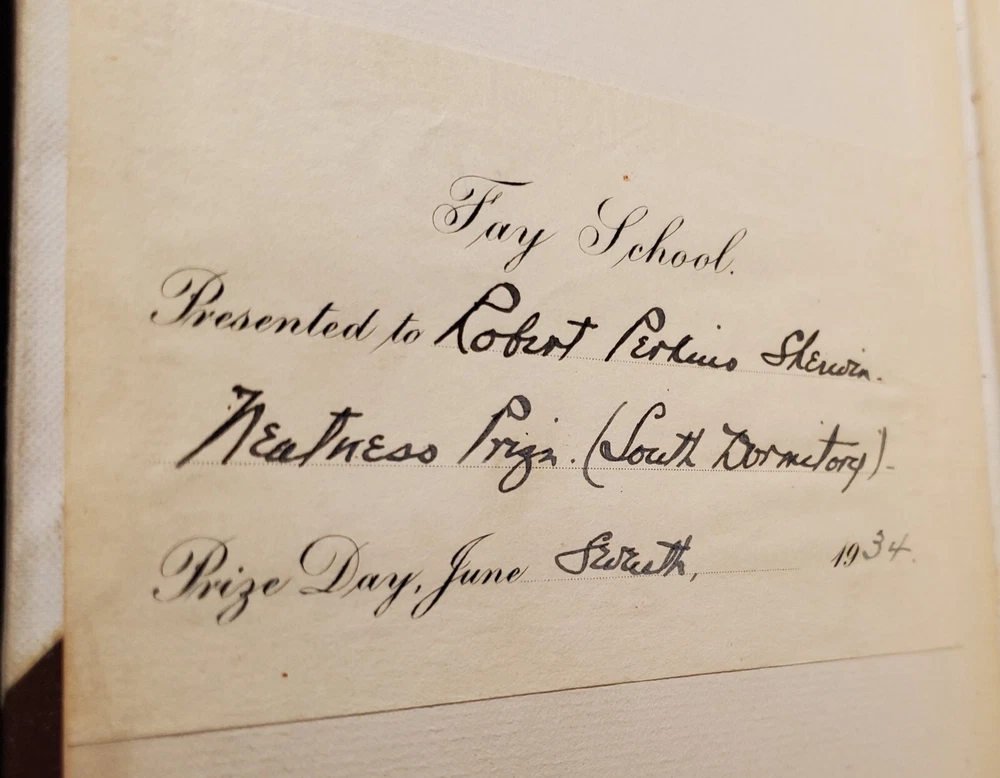 Fay School.
Presented to Robert Perkins Sherwin.
Neatness Prize. (South Dormitory)-
Prize Day, June Seventh, 1934.